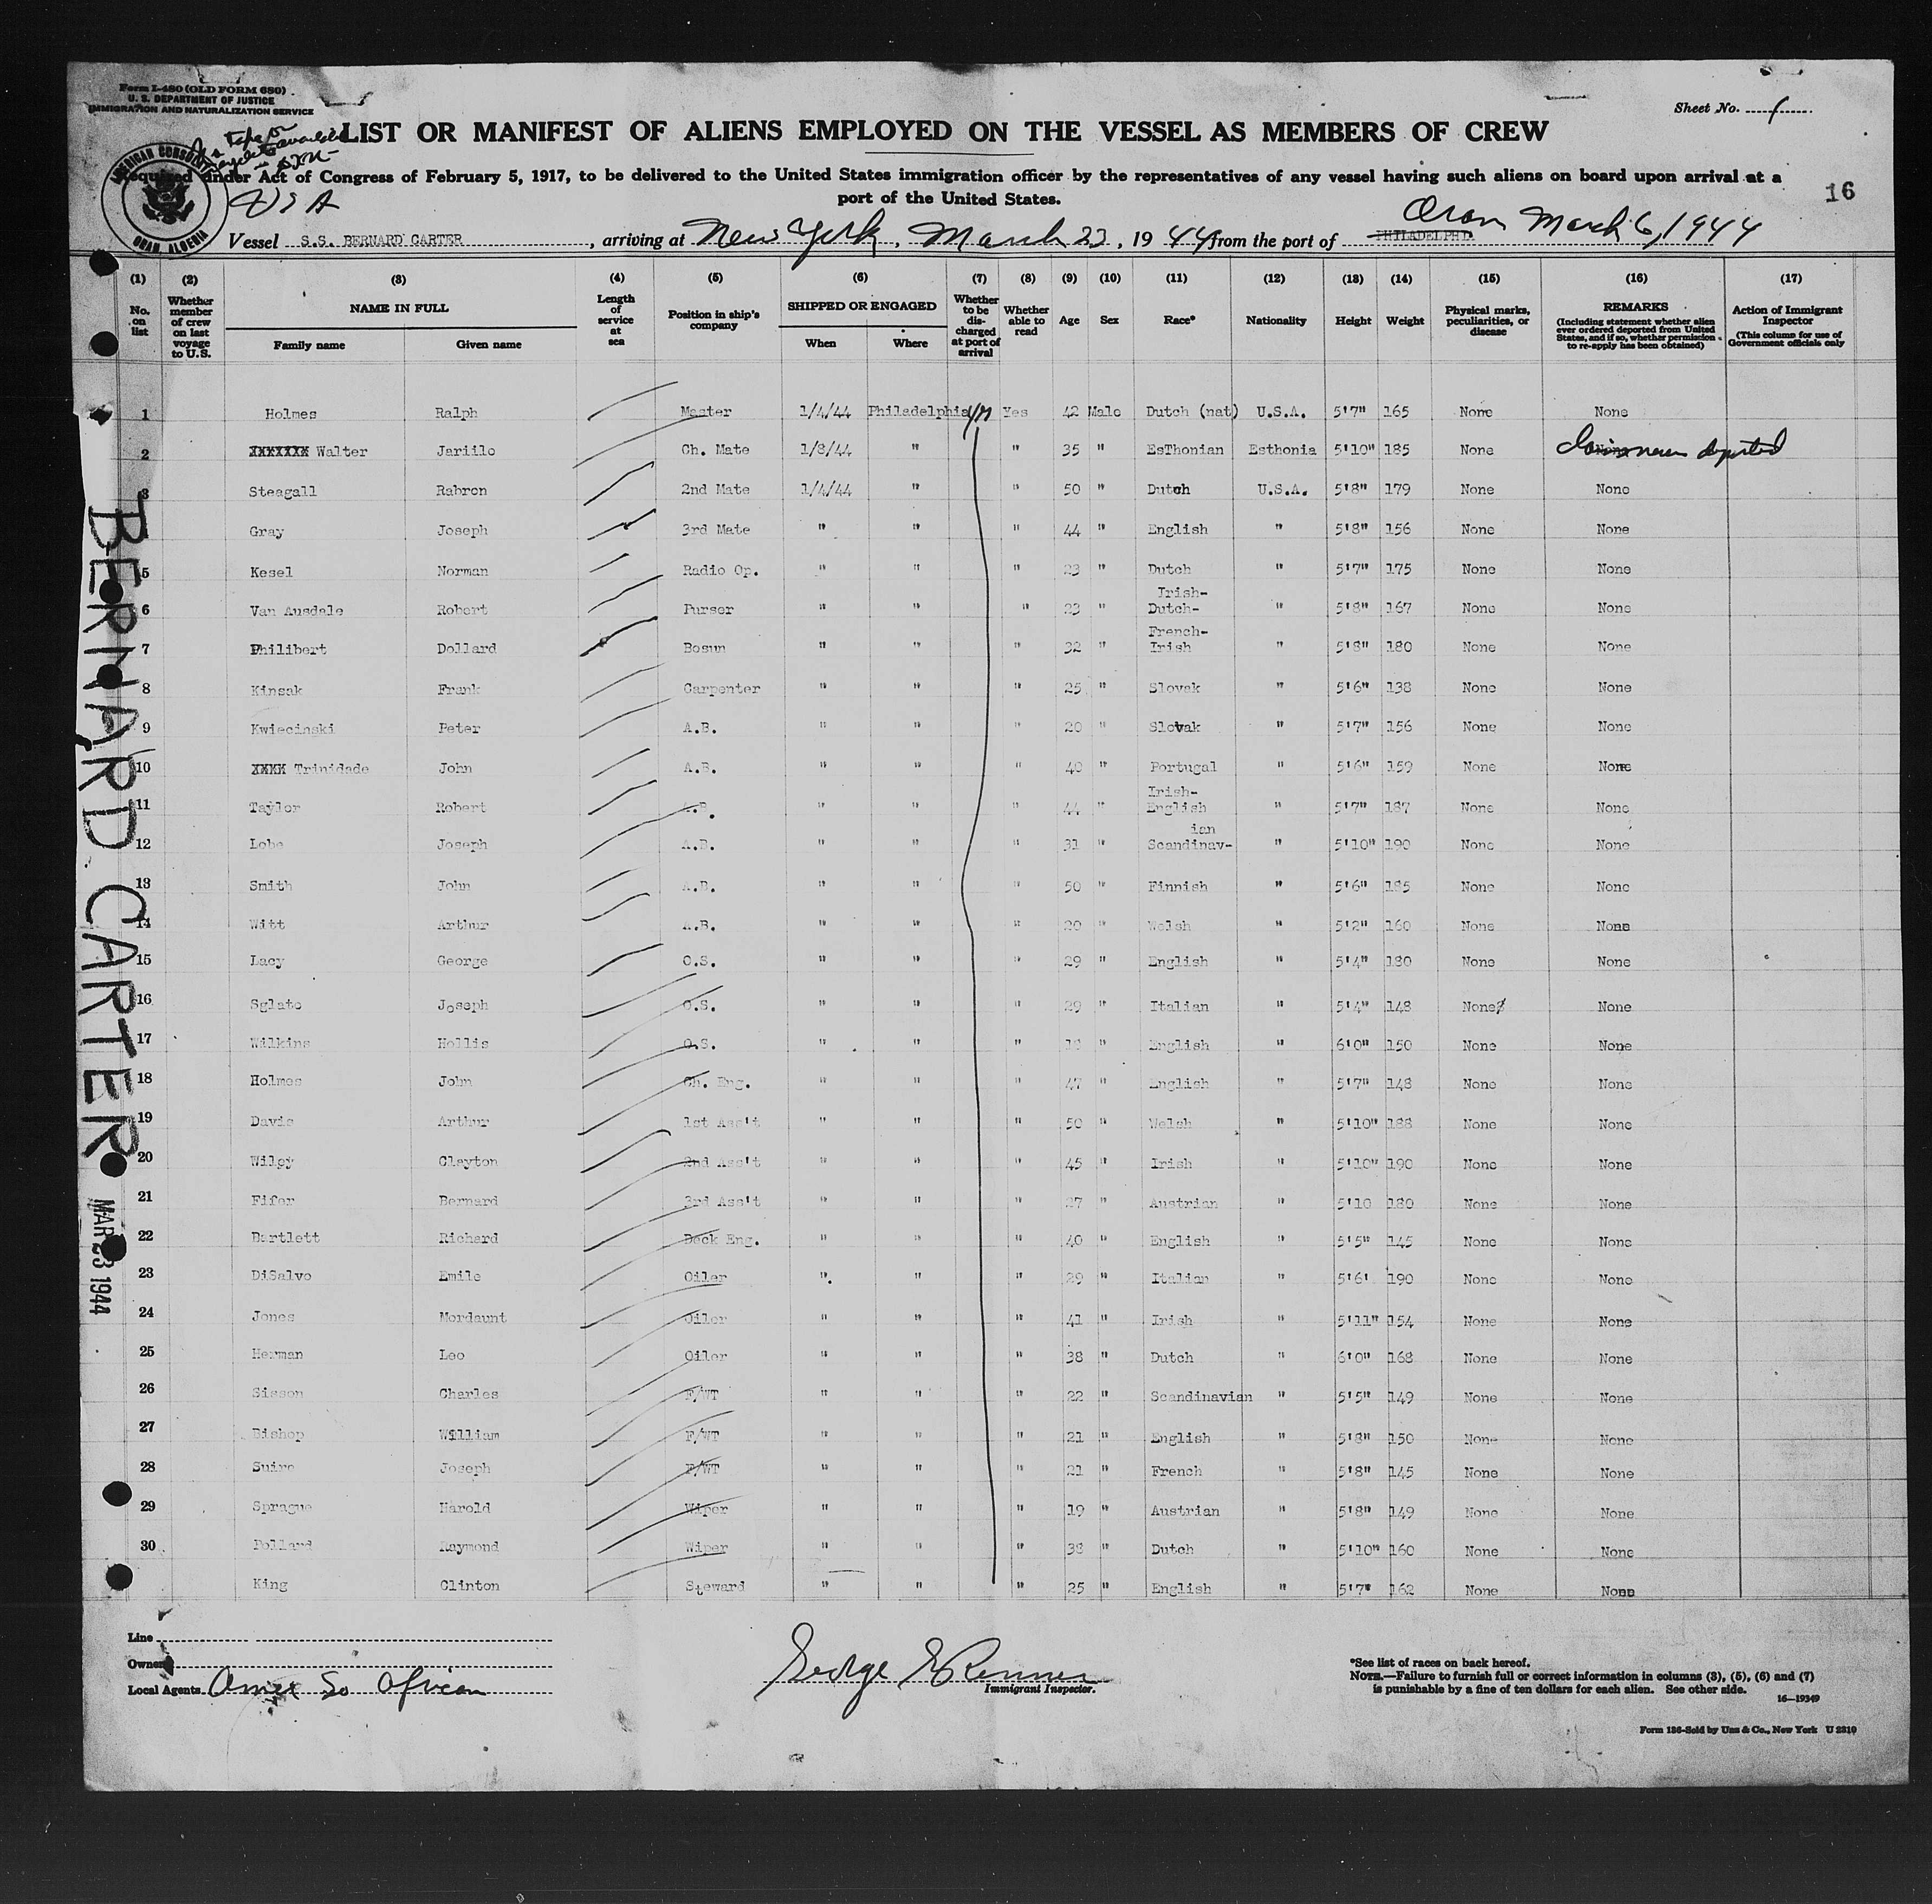 Form I-480 (OLD FORM 680)
U. S. DEPARTMENT OF JUSTICE
IMMIGRATION AND NATURALIZATION SERVICE
Sheet No. 1
LIST OR MANIFEST OF ALIENS EMPLOYED ON THE VESSEL AS MEMBERS OF CREW
AMERICAN CONSULATE
ORAN, ALGERIA
Required under Act of Congress of February 5, 1917, to be delivered to the United States immigration officer by the representatives of any vessel having such aliens on board upon arrival at a
port of the United States.
16
USA
Vessel S.S. BERNARD CARTER, arriving at New York, March 23, 1944 from the port of PHILADELPHIA Oran March 6, 1944
(1) (2) (3) (4) (5) (6) (7) (8) (9) (10) (11) (12) (13) (14) (15) (16) (17)
No. on list
Whether member of crew on last voyage to U.S.
NAME IN FULL
Family name Given name
Length of service at sea
Position in ship's company
SHIPPED OR ENGAGED
When Where
Whether to be discharged at port of arrival
Whether able to read
Age
Sex
Race*
Nationality
Height
Weight
Physical marks, peculiarities, or disease
REMARKS
(Including statement whether alien ever ordered deported from United States, and if so, whether permission to re-apply has been obtained)
Action of Immigrant Inspector
(This column for use of Government officials only
1 Holmes Ralph Master 1/4/44 Philadelphia Yes 42 Male Dutch (nat) U.S.A. 5'7" 165 None None
2 XXXXXXX Walter Jariilo Ch. Mate 1/8/44 " " 35 " EsThonian Esthonia 5'10" 185 None Claims never deported
3 Steagall Rabron 2nd Mate 1/4/44 " " 50 " Dutch U.S.A. 5'8" 179 None None
Gray Joseph 3rd Mate " " " 44 " English " 5'8" 156 None None
5 Kesel Norman Radio Op. " " " 23 " Dutch " 5'7" 175 None None
6 Van Ausdale Robert Purser " " " 23 " Irish-Dutch- " 5'8" 167 None None
7 Philibert Dollard Bosun " " " 32 " French-Irish " 5'8" 180 None None
8 Kinsak Frank Carpenter " " " 25 " Slovak " 5'6" 138 None None
9 Kwiecinski Peter A.B. " " " 20 " Slovak " 5'7" 156 None None
10 XXXX Trinidade John A.B. " " " 40 " Portugal " 5'6" 159 None None
11 Taylor Robert A.B. " " " 44 " Irish-English " 5'7" 187 None None
12 Lobe Joseph A.B. " " " 31 " Scandinav-ian " 5'10" 190 None None
13 Smith John A.B. " " " 50 " Finnish " 5'6" 185 None None
14 Witt Arthur A.B. " " " 20 " Welsh " 5'2" 160 None None
15 Lacy George O.S. " " " 29 " English " 5'4" 130 None None
16 Sglato Joseph O.S. " " " 29 " Italian " 5'4" 148 None None
17 Wilkins Hollis O.S. " " " " English " 6'0" 150 None None
18 Holmes John Ch. Eng. " " " 47 " English " 5'7" 148 None None
19 Davis Arthur 1st Ass't " " " 50 " Welsh " 5'10" 188 None None
20 Wiley Clayton 2nd Ass't " " " 45 " Irish " 5'10" 190 None None
21 Fifer Bernard 3rd Ass't " " " 27 " Austrian " 5'10 180 None None
22 Bartlett Richard Deck Eng. " " " 40 " English " 5'5" 145 None None
23 DiSalvo Emile Oiler " " " 29 " Italian " 5'6' 190 None None
24 Jones Mordaunt Oiler " " " 41 " Irish " 5'11" 154 None None
25 Herman Leo Oiler " " " 38 " Dutch " 6'0" 168 None None
26 Sisson Charles F/WT " " " 22 " Scandinavian " 5'5" 149 None None
27 Bishop William F/WT " " " 21 " English " 5'8" 150 None None
28 Suire Joseph F/WT " " " 21 " French " 5'8" 145 None None
29 Sprague Harold Wiper " " " 19 " Austrian " 5'8" 149 None None
30 Pollard Raymond Wiper " " " 38 " Dutch " 5'10" 160 None None
King Clinton Steward " " " 25 " English " 5'7" 162 None None
BERNARD CARTER
MAR 23 1944
Line
Owner
Local Agents Amer So African
George E Renner
Immigrant Inspector.
*See list of races on back hereof.
NOTE.—Failure to furnish full or correct information in columns (3), (5), (6) and (7)
is punishable by a fine of ten dollars for each alien. See other side.
16—19349
Form 136-Sold by Unz & Co., New York U 2310